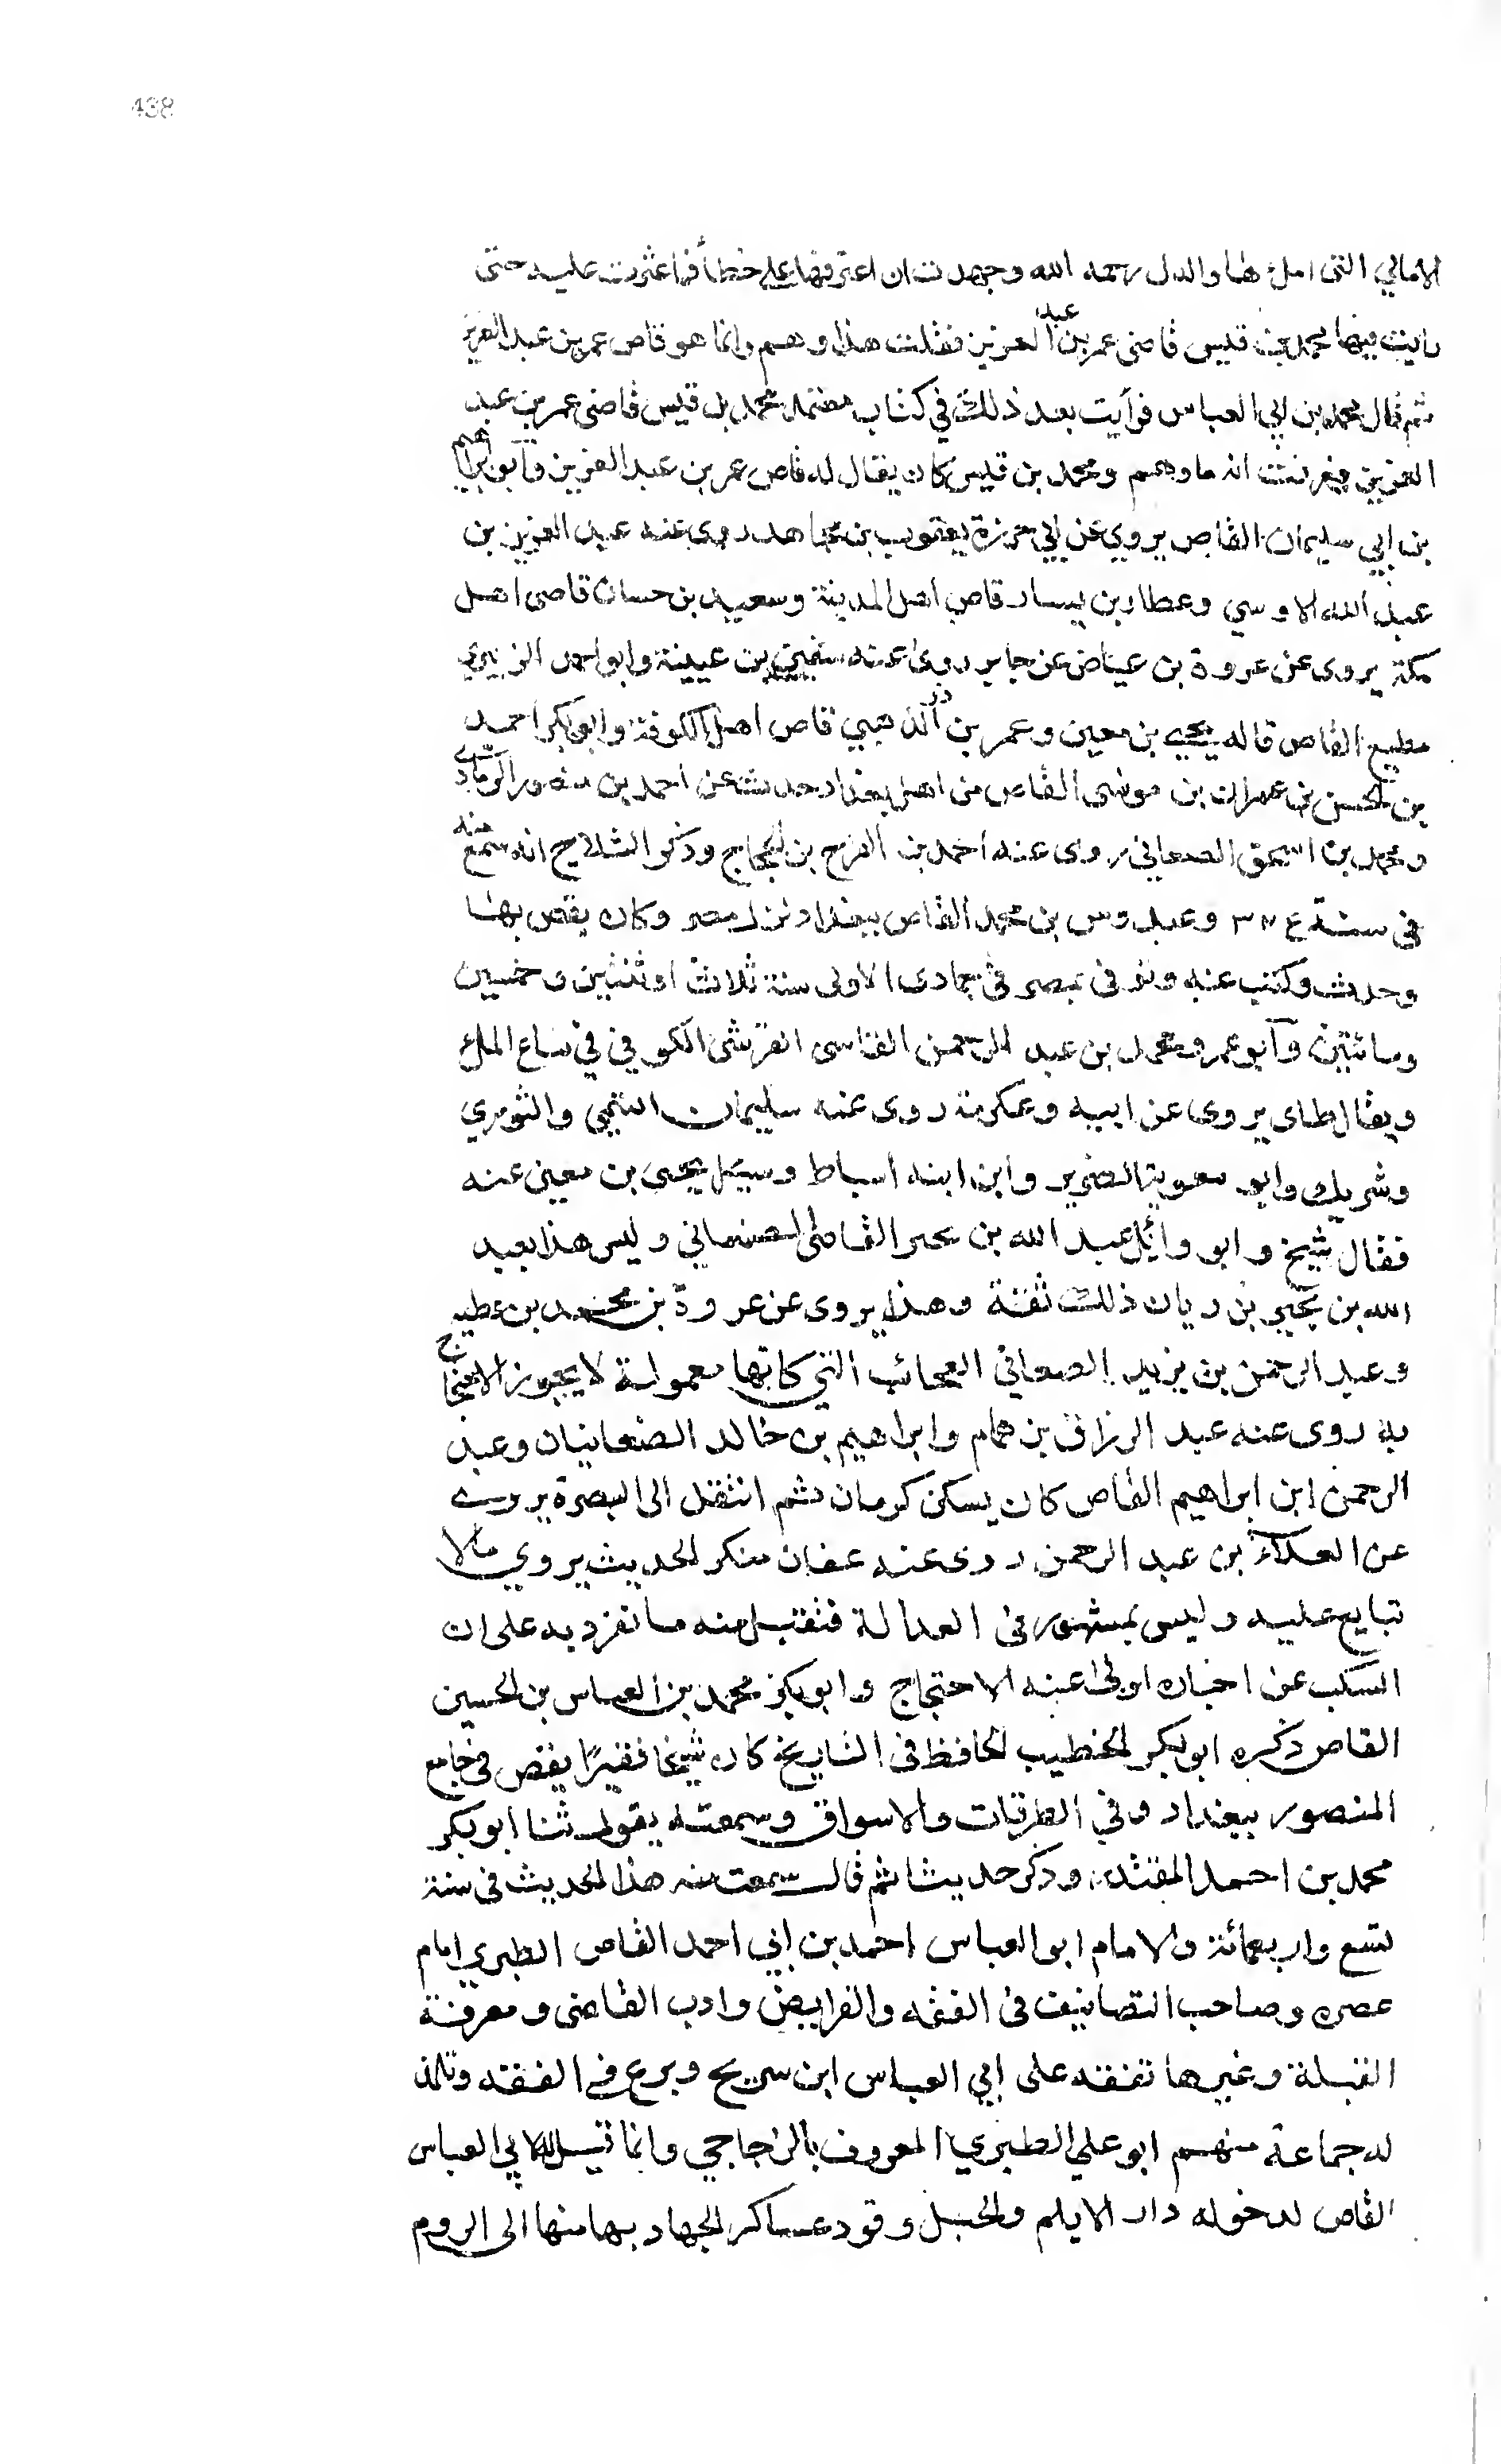 438
الامالي التى املاها والدى رحمه الله وجهدت ان اعثر فيها على خطأ فما عثرت عليه حتى
رايت فيها محمد بن قيس قاضى عمر بن عبد العزيز فقلت هذا وهم وانما هو قاص عمر بن عبد العزيز
ثم قال محمد بن ابي العباس فرأيت بعد ذلك في كتاب محمد بن قيس قاضى عمر بن عبد
العزيز فعرفت انه ما وهم ومحمد بن قيس كان يقال له قاص عمر بن عبد العزيز وابو ابراهيم
بن ابي سليمان القاص يروي عن ابي حرزة يعقوب بن مجاهد روى عنه عبد العزيز بن
عبد الله الاوسي وعطا بن يسار قاص اهل المدينة وسعيد بن حسان قاضى اهل
مكة يروى عن عروة بن عياض عن جابر روى عنه سفين بن عيينة وابو احمد الزبيري
مطيع القاص قاله يحيى بن معين وعمر بن ذر الذهبي قاص اهل الكوفة وابو بكر احمد
بن الحسن بن عمران بن موسى القاص من اهل بغداد حدث عن احمد بن منصور الرمادى
ومحمد بن اسحق الصعاني روى عنه احمد بن الفرج بن الحجاج وذكر الثلاج انه سمع منه
في سنة وعبدوس بن محمد القاص ببغداد نزل مصر وكان يقص بها
وحدث وكتب عنه وتوفى بمصر في جمادى الاولى سنة ثلاث او ثنتين وخمسين
ومائتين وابو عمرو محمد بن عبد الرحمن القاسى القرشى الكوفي في نساع الملا
ويقال طاى يروى عن ابيه وعكرمة روى عنه سليمان التيمي والثوري
وشريك وابو معوية الضرير وابن ابنه اسباط وسيئل يحيى بن معين عنه
فقال شيخ وابو وائل عبد الله بن بحير القاص الصنعاني وليس هذا بعبد
الله بن بحير بن ريان ذلك ثقة وهذا يروى عن عروة بن محمد بن عطيه
وعبد الرحمن بن يزيد الصعاني العجائب التي كانها معمولة لا يجوز الاحتجاج
به روى عنه عبد الرزاق بن همام وابراهيم بن خالد الصنعانيان وعبد
الرحمن ابن ابراهيم القاص كان يسكن كرمان ثم انتقل الى البصرة يروى
عن العلاء بن عبد الرحمن روى عنه عفان منكر الحديث يروي مالا
تبايع عليه وليس بمشهور في العدالة فتقبل منه ما تفرد به على ان
السكب عن اخباره اولى عنه الاحتجاج وابو بكر محمد بن العباس بن الحسين
القاص ذكره ابو بكر الخطيب الحافظ في التاريخ كان شيخا فقيرًا يقص في جامع
المنصور ببغداد وفي الطرقات والاسواق وسمعته يقول ثنا ابو بكر
محمد بن احمد المقتد وذكر حديثا ثم قال سمعت منه هذا الحديث في سنة
تسع واربعمائة والامام ابو العباس احمد بن ابي احمد القاص الطبري امام
عصره وصاحب التصانيف في الفقه والفرايض وادب القاضى ومعرفة
القبلة وغيرها تفقه على ابي العباس ابن سريج وبرع في الفقه وتلمذ
له جماعة منهم ابو علي الطبري المعروف بالزجاجي وانما قيل لابي العباس
القاص لدخوله دار الايلم والجبل وقود عساكر الجهاد بها منها الى الروم